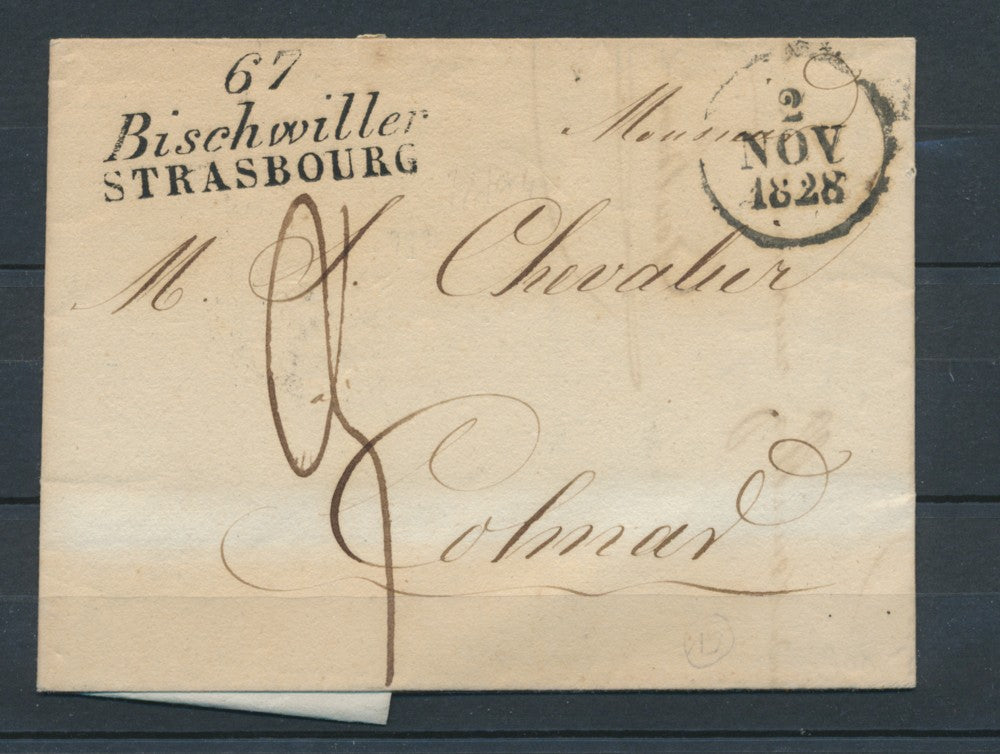 67
Bischwiller
STRASBOURG
2
NOV
1828
Monsieur
M. S. Chevalier
Colmar